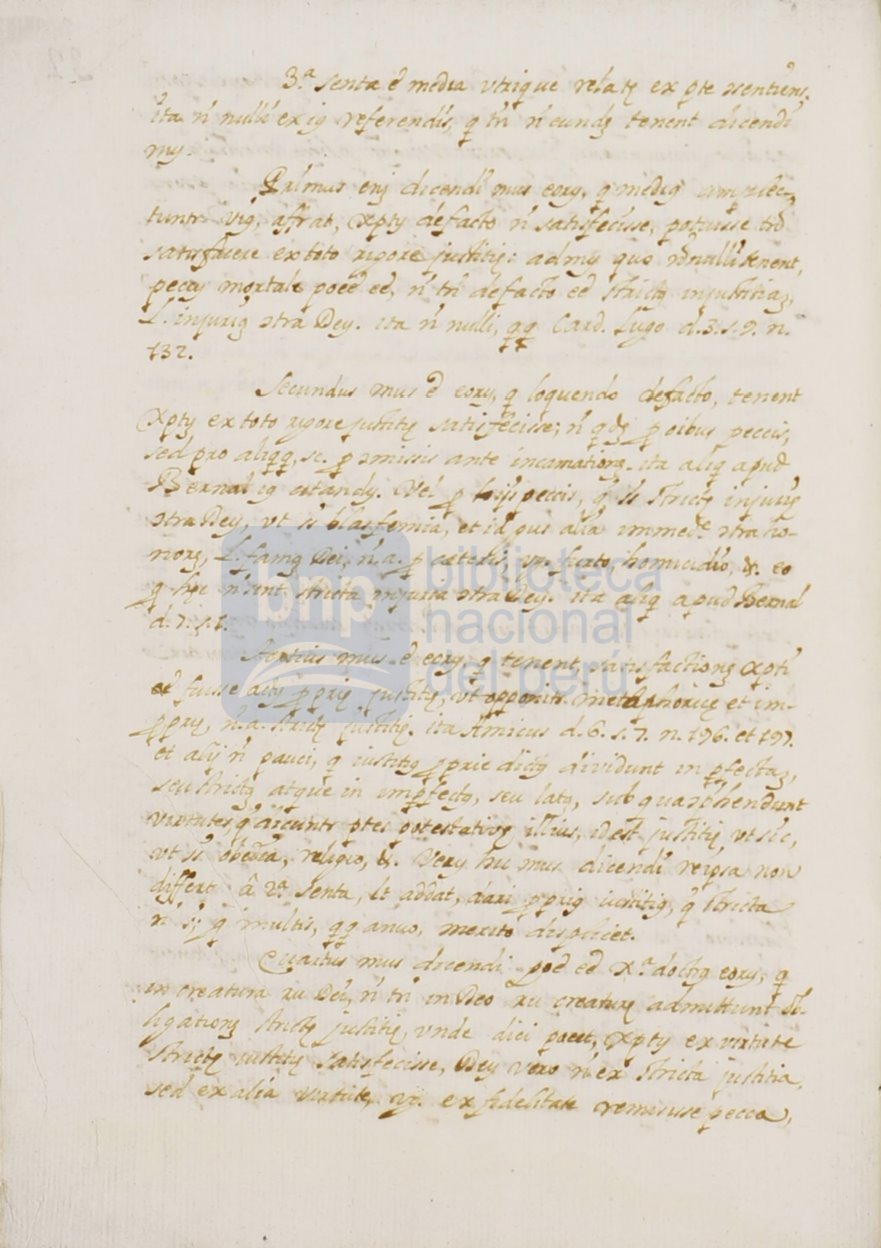 3.ª senta ē media utrique relatę ex pte sentiens.
ita ń nulli ex iç referendis, q tń ń eundę tenent dicendi
mụ.
Primus eņ dicendi mus eorụ, q mediã amplec-
tuntr viã, affrat, Xptụ defacto ń satisfecisse, potuisse tń
satisfacere ex toto rigore justitię: ad mụ quo nōnulli tenent,
peccụ mortale, ń tń defacto eē strictã injustitiaȝ,
L. injuriã ɔtra Deụ. ita ń nulli, qq Card. Lugo d. 3. s. 9. n.
132.
Secundus mus ē eorụ, q loquendo defacto, tenent
Xptụ ex toto rigore justitię satisfecisse; ń qdȝ p oibus peccis,
sed pro aliqq, sc. p ɔmissis ante incarnationȝ. ita aliq apud
Bernal citandụ. Vel p his peccis, q st strictę injurię
ɔtra Deụ, ut st blasfemia, et id gus alia immedᵉ ɔtra ho-
norȝ, L. famã Dei, ń. a. p cæteris, vg. furto, homicidio, &. eo
q hęc ń sint stricta injuria ɔtra Deụ. ita aliq apud Bernal
d. 7. s. 1.
Tertius mus ē eorụ, q tenent, satisfactionȝ Xpti
fuisse actụ pprię justitię, ut opponitr metaphoricę et im-
pprię, ń. a. strictę justitię. ita Amicus d. 6. s. 7. n. 196. et 197.
et alij ń pauci, q iustitiã pprie dictã dividunt in pfectaȝ,
seu strictã atque in impfectã, seu latã, sub qua ɔphendunt
virtutes, q dicuntr ptes potestativę illius, id est justitię, ut sic,
ut st obedia, religio, &. Verụ hic mus dicendi reipsa non
differt â 2ª senta, lt addat, dari ppriã iustitiã, q stricta
ń sit; q multis, qq anuo, merito displicet.
Cuartus mus dicendi poē eē Xª doctã eorụ, q
in creatura ru Dei, ń tń in Deo ru creaturę admittunt ob-
ligationȝ strictę justitię, unde dici poēt, Xptụ ex virtute
strictę iustitię satisfecisse, Deụ vero ń ex stricta justitia,
sed ex alia virtute, vg. ex fidelitate remisisse pecca,
biblioteca
nacional
del perú
bnp